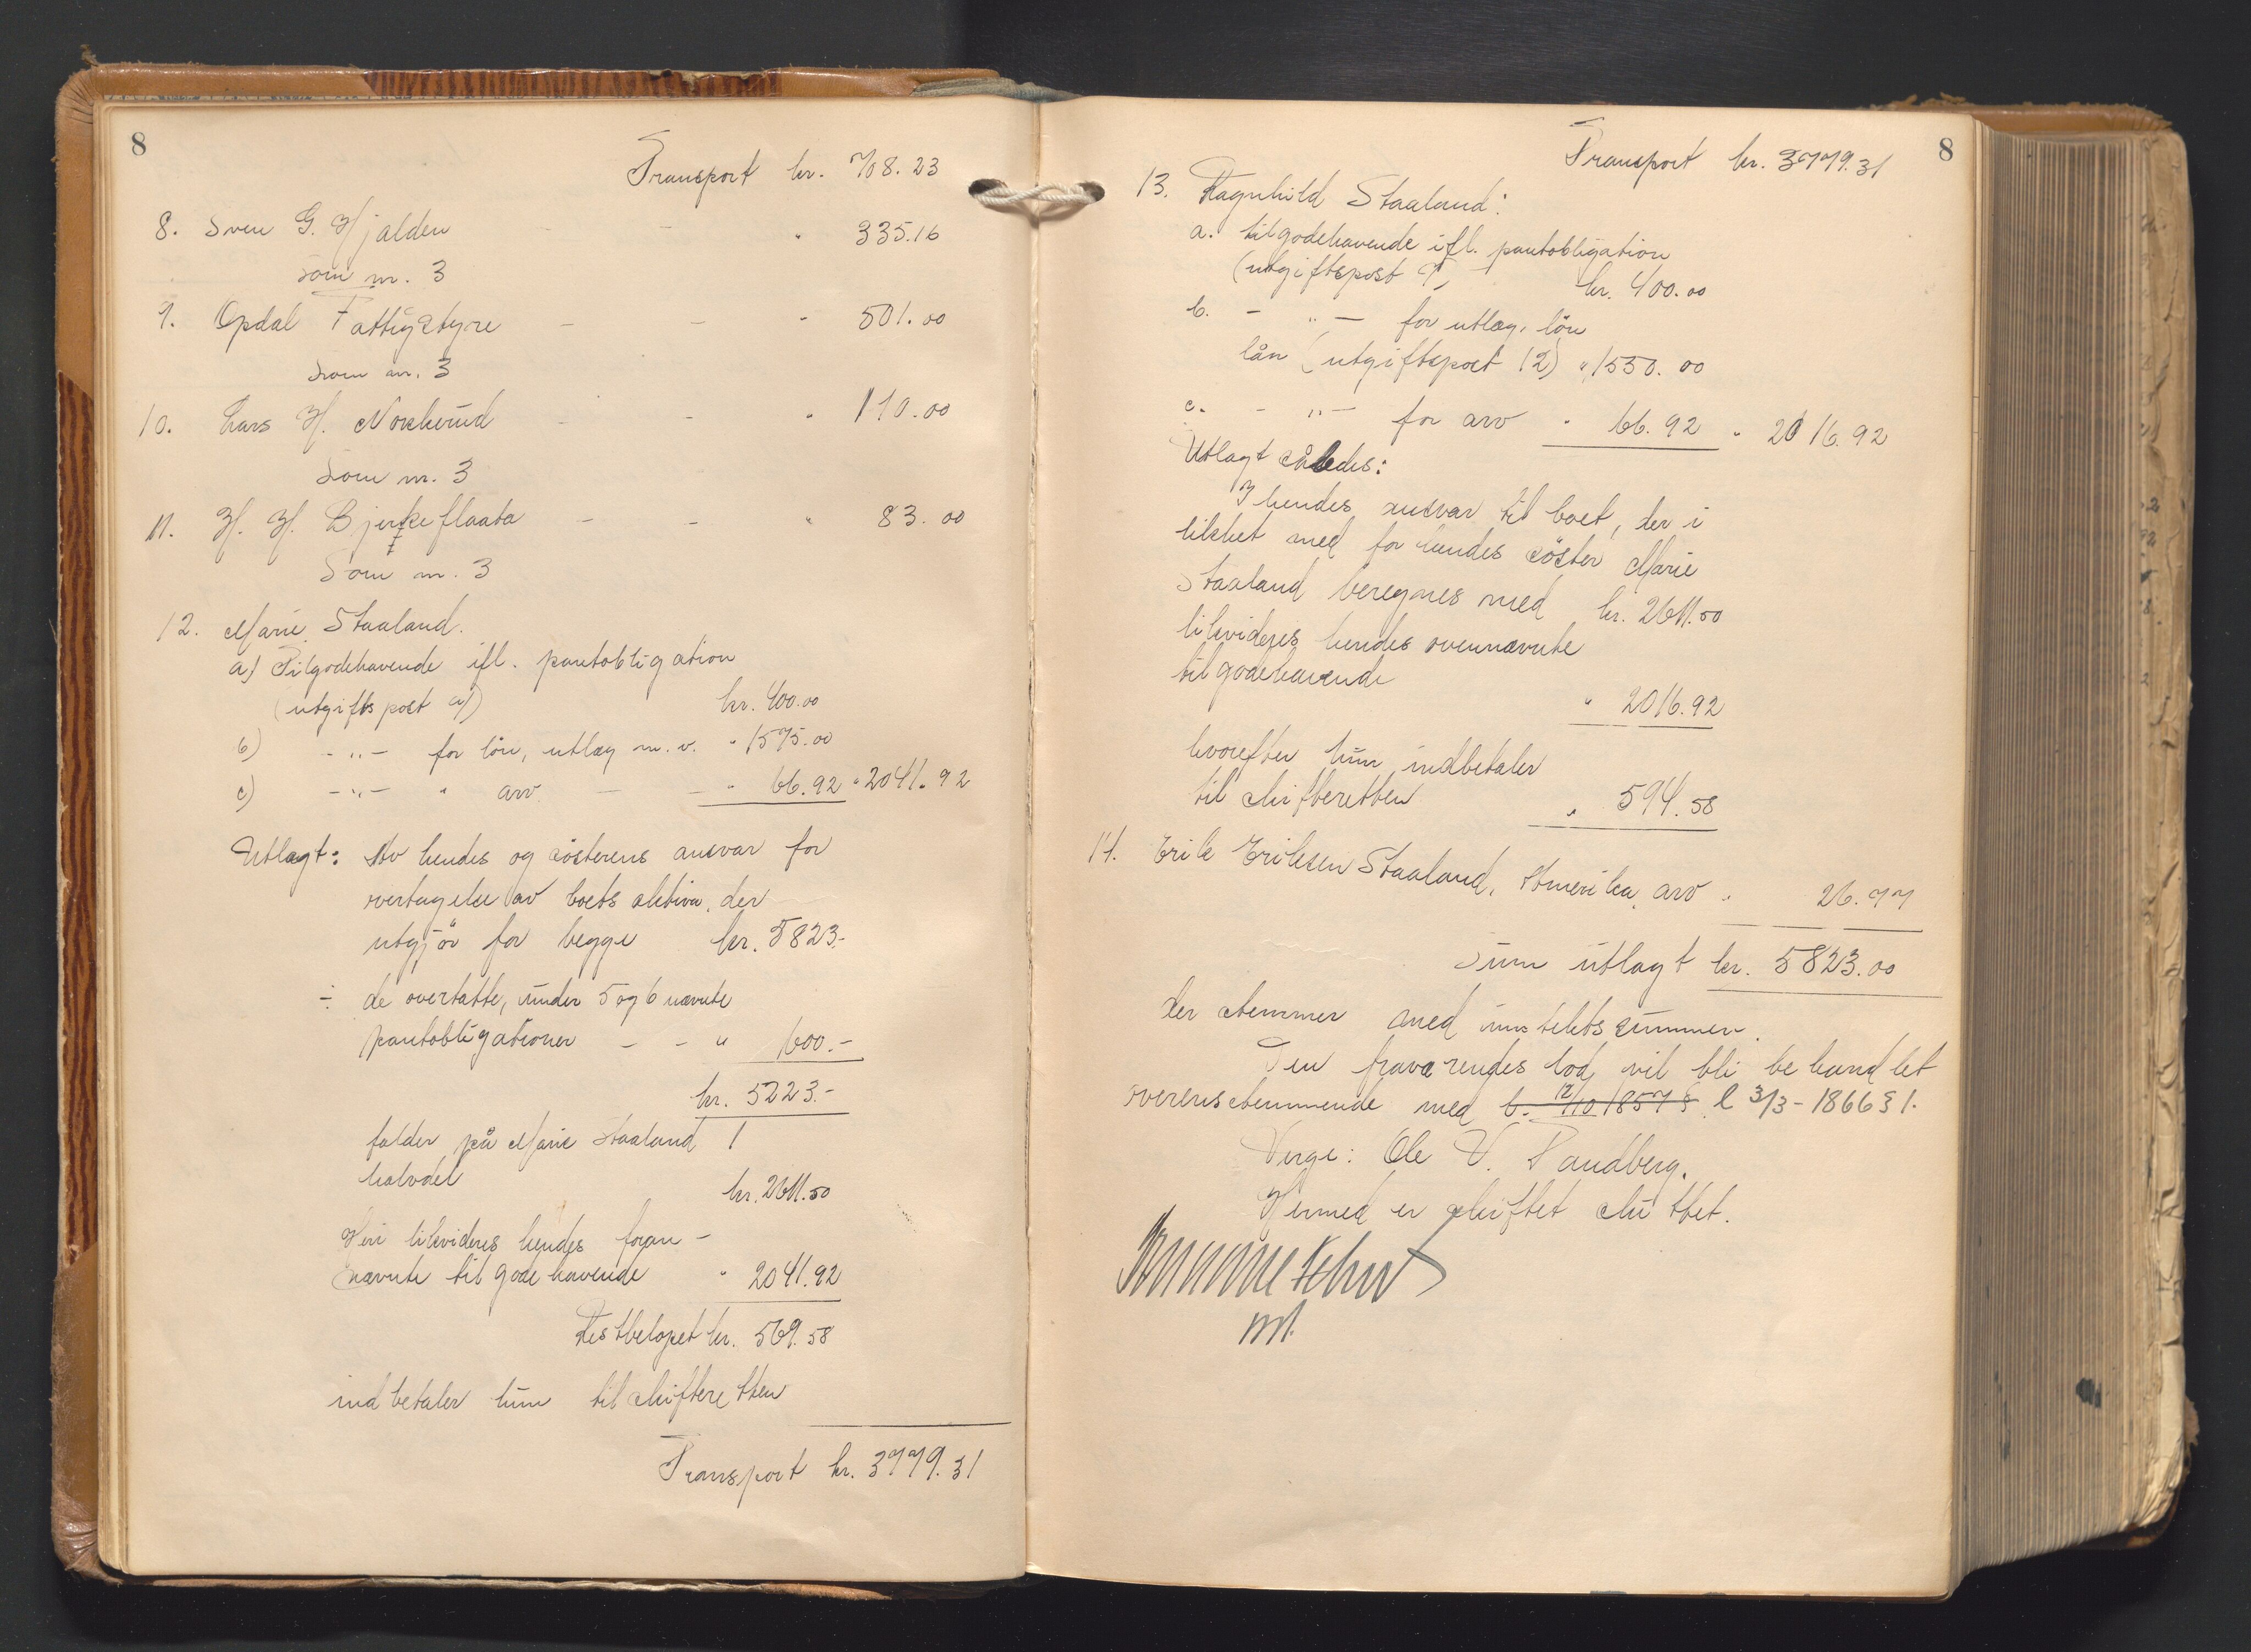 8
Transport kr. 708.23
8. Sven G. Hjalden - - " 335.16
Som nr. 3
9. Opdal Fattigstyre - - " 501.00
Som nr. 3
10. Lars H. Norkerud - - " 110.00
Som nr. 3
11. H. H. Bjerkeflaata - - " 83.00
Som nr. 3
12. Marie Staaland.
a) Tilgodehavende ifl. pantobligation
(utgiftspost a)) kr. 400.00
b) -"- for lön, utlæg m. v. " 1575.00
c) -"- " arv - - " 66.92 " 2041.92
Utlagt: Av hendes og sösterens ansvar for
overtagelse av boets aktiva, der
utgjör for begge kr. 5823.-
÷ de overtatte, under 5 og 6 nævnte
pantobligationer - - " 600.-
kr. 5223.-
falder på Marie Staaland 1
halvdel kr. 2611.50
Heri likvideres hendes foran-
nævnte tilgodehavende " 2041.92
Restbelöpet kr. 569.58
indbetaler hun til skifteretten
Transport kr. 3779.31
8
Transport kr. 3779.31
13. Ragnhild Staaland:
a. tilgodehavende ifl. pantobligation
(utgiftspost 7, kr. 400.00
b. -"- for utlæg, lön
lån (utgiftspost 12) " 1550.00
c. -"- for arv " 66.92 " 2016.92
Utlagt således:
I hendes ansvar til boet, der i
likhet med for hendes söster Marie
Staaland beregnes med kr. 2611.50
likvideres hendes ovennævnte
tilgodehavende " 2016.92
hvorefter hun indbetaler
til skifteretten " 594.58
14. Erik Eriksen Staaland, Amerika, arv " 26.77
Sum utlagt kr. 5823.00
der stemmer med inntektssummen.
Den fraværendes lod vil bli behandlet
overensstemmende med l. 12/10 1857 § l 3/3 - 1866 § 1.
Verge: Ole V. Sandberg.
Hermed er skiftet sluttet.